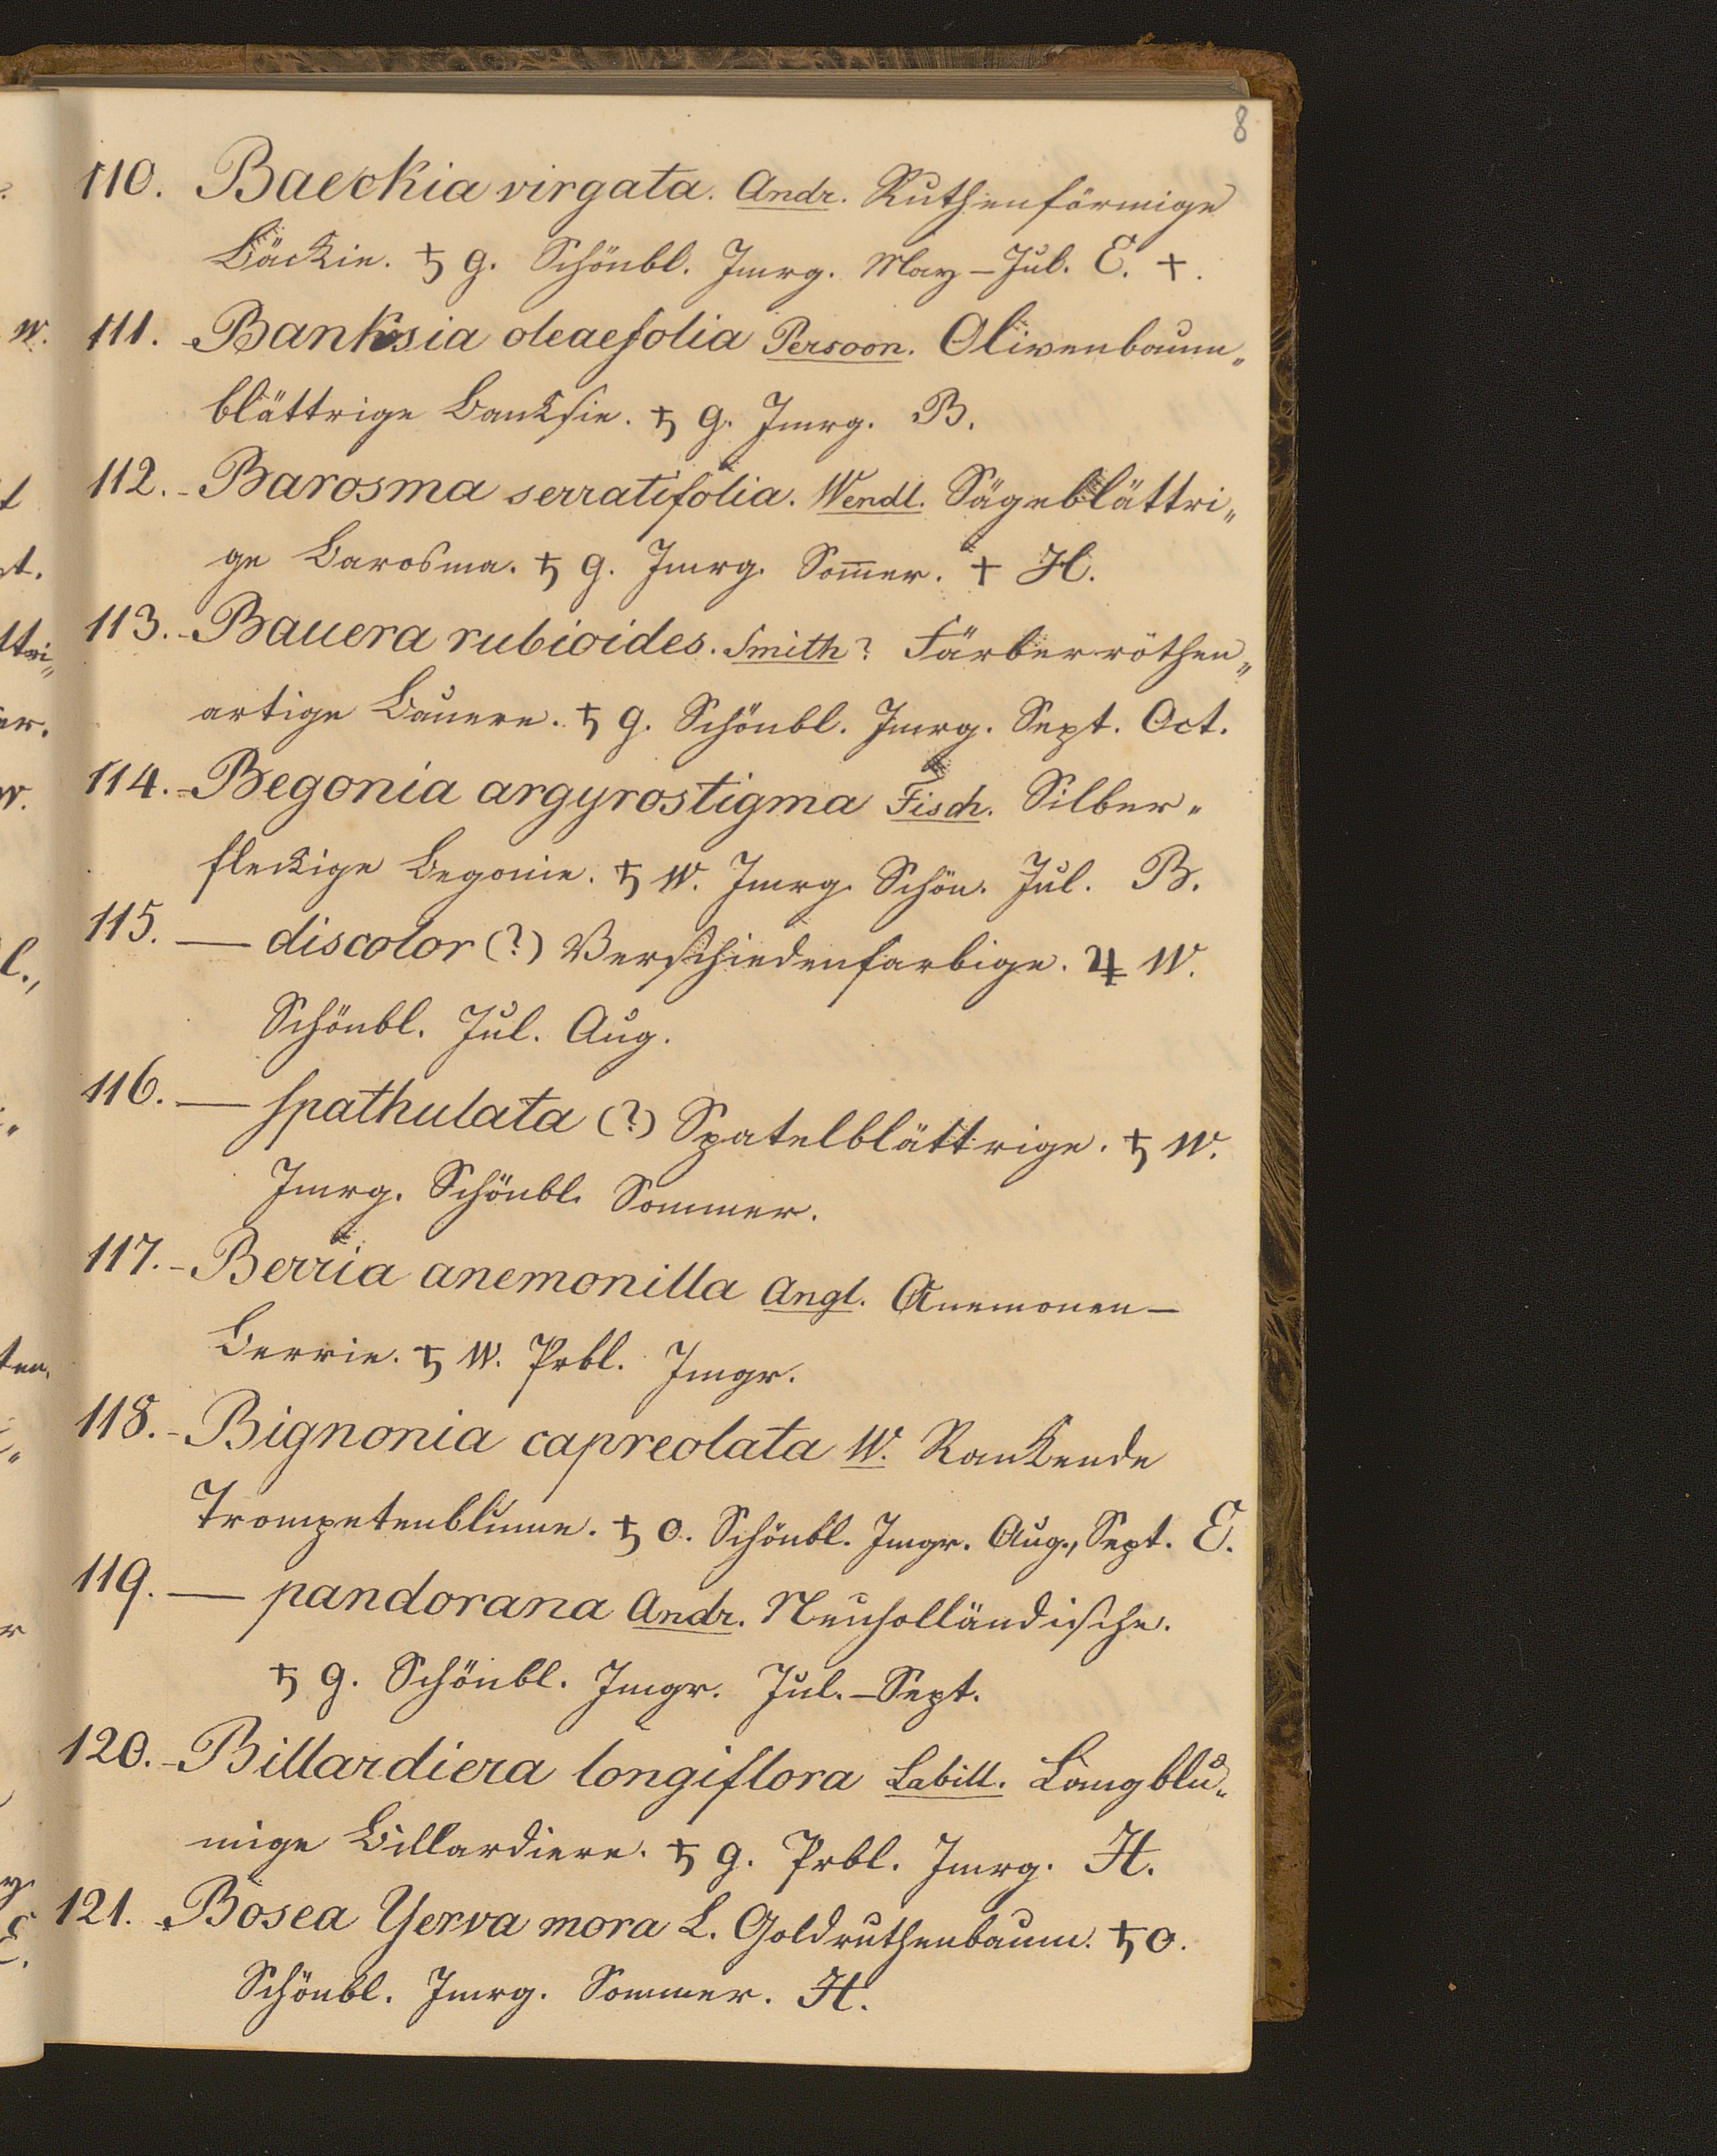 8
110. Baeckia virgata. Andr. Ruthenförmige
Bäckie. ♄ g. Schönbl. Jmrg. May – Jul. E. +.
111. Banksia oleaefolia Persoon. Olivenbaum„
blättrige Banksie. ♄ g. Jmrg. B.
112. - Barosma serratifolia. Wendl. Sägeblättri„
ge Barosma. ♄ g. Jmrg. Som̅er. + H.
113. - Bauera rubioides. Smith? Färberröthen„
artige Bauere. ♄ g. Schönbl. Jmrg. Sept. Oct.
114. - Begonia argyrostigma Fisch. Silber„
fleckige Begonie. ♄ W. Jmrg. Schön. Jul. B.
115. — discolor (?) Verschiedenfarbige. ♃ W.
Schönbl. Jul. Aug.
116. — spathulata (?) Spatelblättrige. ♄ W.
Jmrg. Schönbl. Sommer.
117. - Berria anemonilla Angl. Anemonen –
Berrie. ♄ W. Prbl. Jmgr.
118. - Bignonia capreolata W. Rankende
Trompetenblume. ♄ O. Schönbl. Jmgr. Aug., Sept. E.
119. — pandorana Andr. Neuholländische.
♄ g. Schönbl. Jmgr. Jul. – Sept.
120. - Billardiera longiflora Labill. Langblu„
mige Billardiere. ♄ g. Prbl. Jmrg. H.
121. - Bosea Yerva mora L. Goldruthenbaum. ♄ O.
Schönbl. Jmrg. Sommer. H.